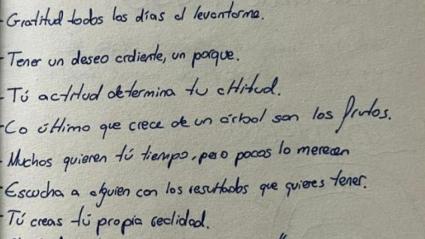 - Gratitud todos los días al levantarme.
- Tener un deseo ardiente, un porque.
- Tú actitud determina tu altitud.
- Lo último que crece de un árbol son los frutos.
- Muchos quieren tú tiempo, pero pocos lo merecen
- Escucha a alguien con los resultados que quieres tener.
- Tú creas tú propia realidad.